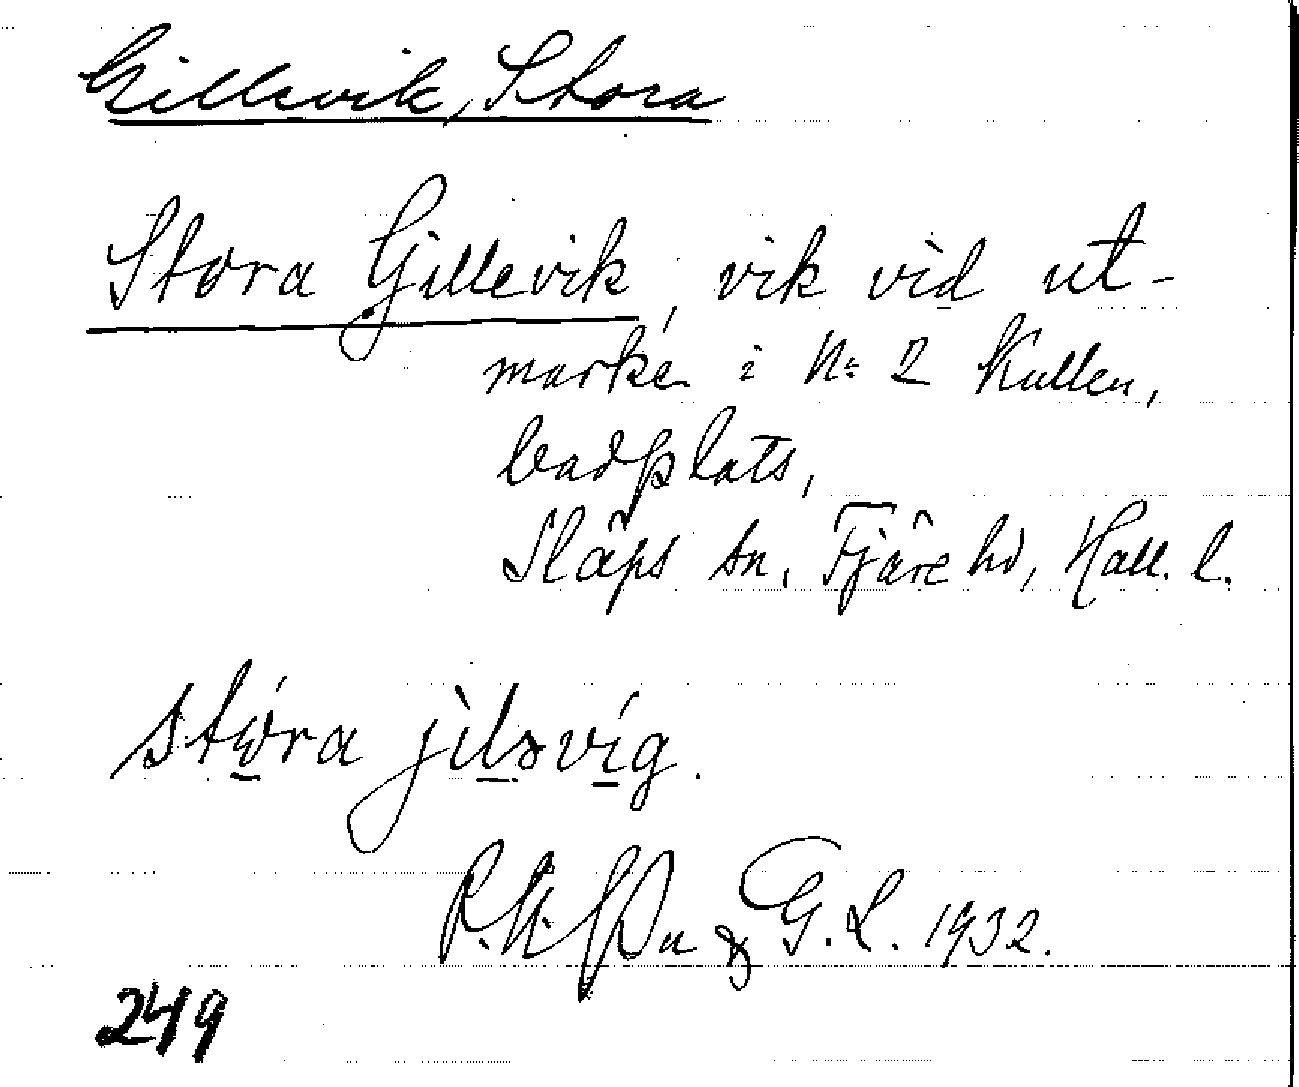 Gillevik, Stora
Stora Gillevik, vik vid ut-
marken i Nº 2 Kullen,
badplats,
Släps sn, Fjäre hd, Hall. l.
stóra jìləvíg.
& G. L. 1932.
249